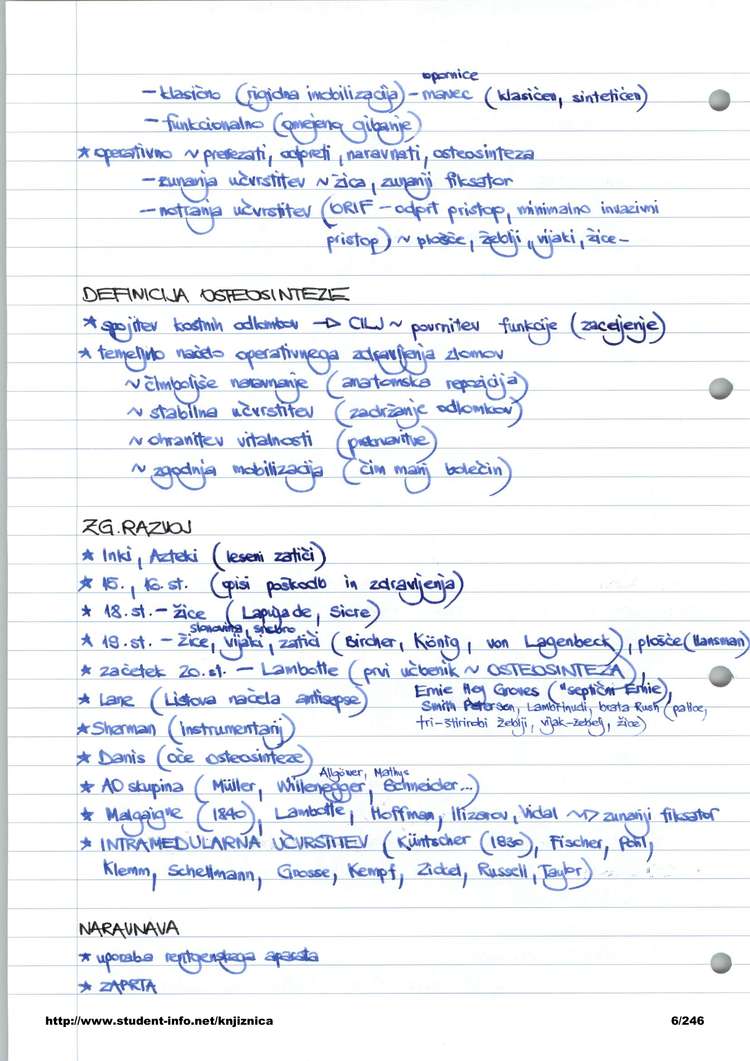 opornice
– klasično (rigidna imobilizacija) – mavec (klasičen, sintetičen)
– funkcionalno (omejeno gibanje)
* operativno ~ prerezati, odpreti, naravnati, osteosinteza
– zunanja učvrstitev ~ žica, zunanji fiksator
– notranja učvrstitev (ORIF – odprt pristop, minimalno invazivni
pristop) ~ plošče, žeblji, vijaki, žice –
DEFINICIJA OSTEOSINTEZE
* spojitev kostnih odlomkov → CILJ ~ povrnitev funkcije (zaceljenje)
* temeljno načelo operativnega zdravljenja zlomov
~ čimboljše naravnanje (anatomska repozicija)
~ stabilna učvrstitev (zadržanje odlomkov)
~ ohranitev vitalnosti (prekrvavitve)
~ zgodnja mobilizacija (čim manj bolečin)
ZG. RAZVOJ
* Inki, Azteki (leseni zatiči)
* 15., 16. st. (opisi poškodb in zdravljenja)
* 18. st. – žice (Lapujade, Sicre)
slonovina, srebro
* 19. st. – žice, vijaki, zatiči (Bircher, König, von Lagenbeck), plošče (Hansman)
* začetek 20. st. – Lambotte (prvi učbenik ~ OSTEOSINTEZA),
* Lane (Listova načela antisepse) Ernie Hey Groves ("septični Ernie),
Smith Petersen, Lambrinudi, brata Rush (palice,
* Sherman (instrumentarij) tri-štirirobi žeblji, vijak-žebelj, žice)
* Danis (oče osteosinteze)
Allgöwer, Mathys
* AO skupina (Müller, Willenegger, Schneider...)
* Malgaigne (1840), Lambotte, Hoffman, Ilizarov, Vidal ~> zunanji fiksator
* INTRAMEDULARNA UČVRSTITEV (Küntscher (1930), Fischer, Pohl,
Klemm, Schellmann, Grosse, Kempf, Zickel, Russell, Taylor)
NARAVNAVA
* uporaba rentgenskega aparata
* ZAPRTA
http://www.student-info.net/knjiznica 6/246